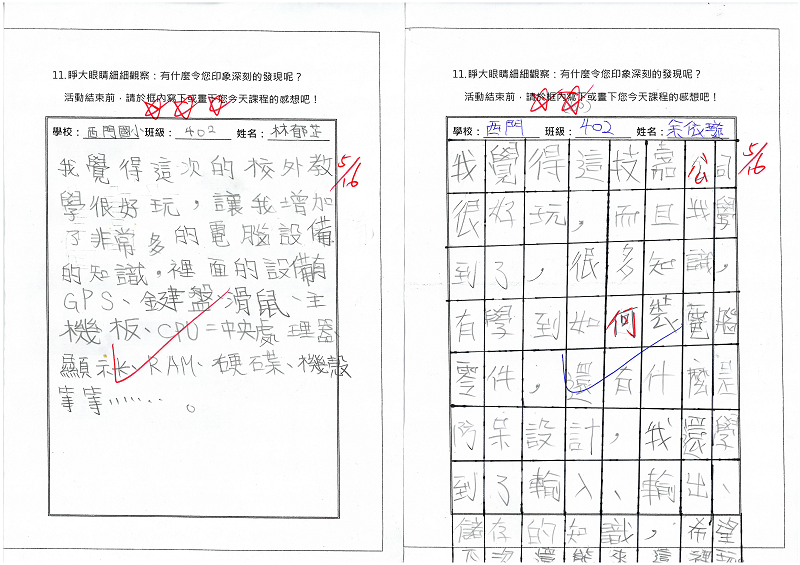 11.睜大眼睛細細觀察：有什麼令您印象深刻的發現呢？
活動結束前，請於框內寫下或畫下您今天課程的感想吧！
學校：西門國小 班級：402 姓名：林郁芷
5/16
我覺得這次的校外教
學很好玩，讓我增加
了非常多的電腦設備
的知識。裡面的設備有
GPS、鍵盤、滑鼠、主
機板、CPU=中央處理器
顯示卡、RAM、硬碟、機殼
等等……。
11.睜大眼睛細細觀察：有什麼令您印象深刻的發現呢？
活動結束前，請於框內寫下或畫下您今天課程的感想吧！
學校：西門 班級：402 姓名：余依璇
5/16
我覺得這技嘉公司
很好玩，而且我學
到了，很多知識，
有學到如何裝電腦
零件，還有什麼是
防呆設計，我還學
到了輸入、輸出、
儲存的知識，希望
下次還能來這裡玩